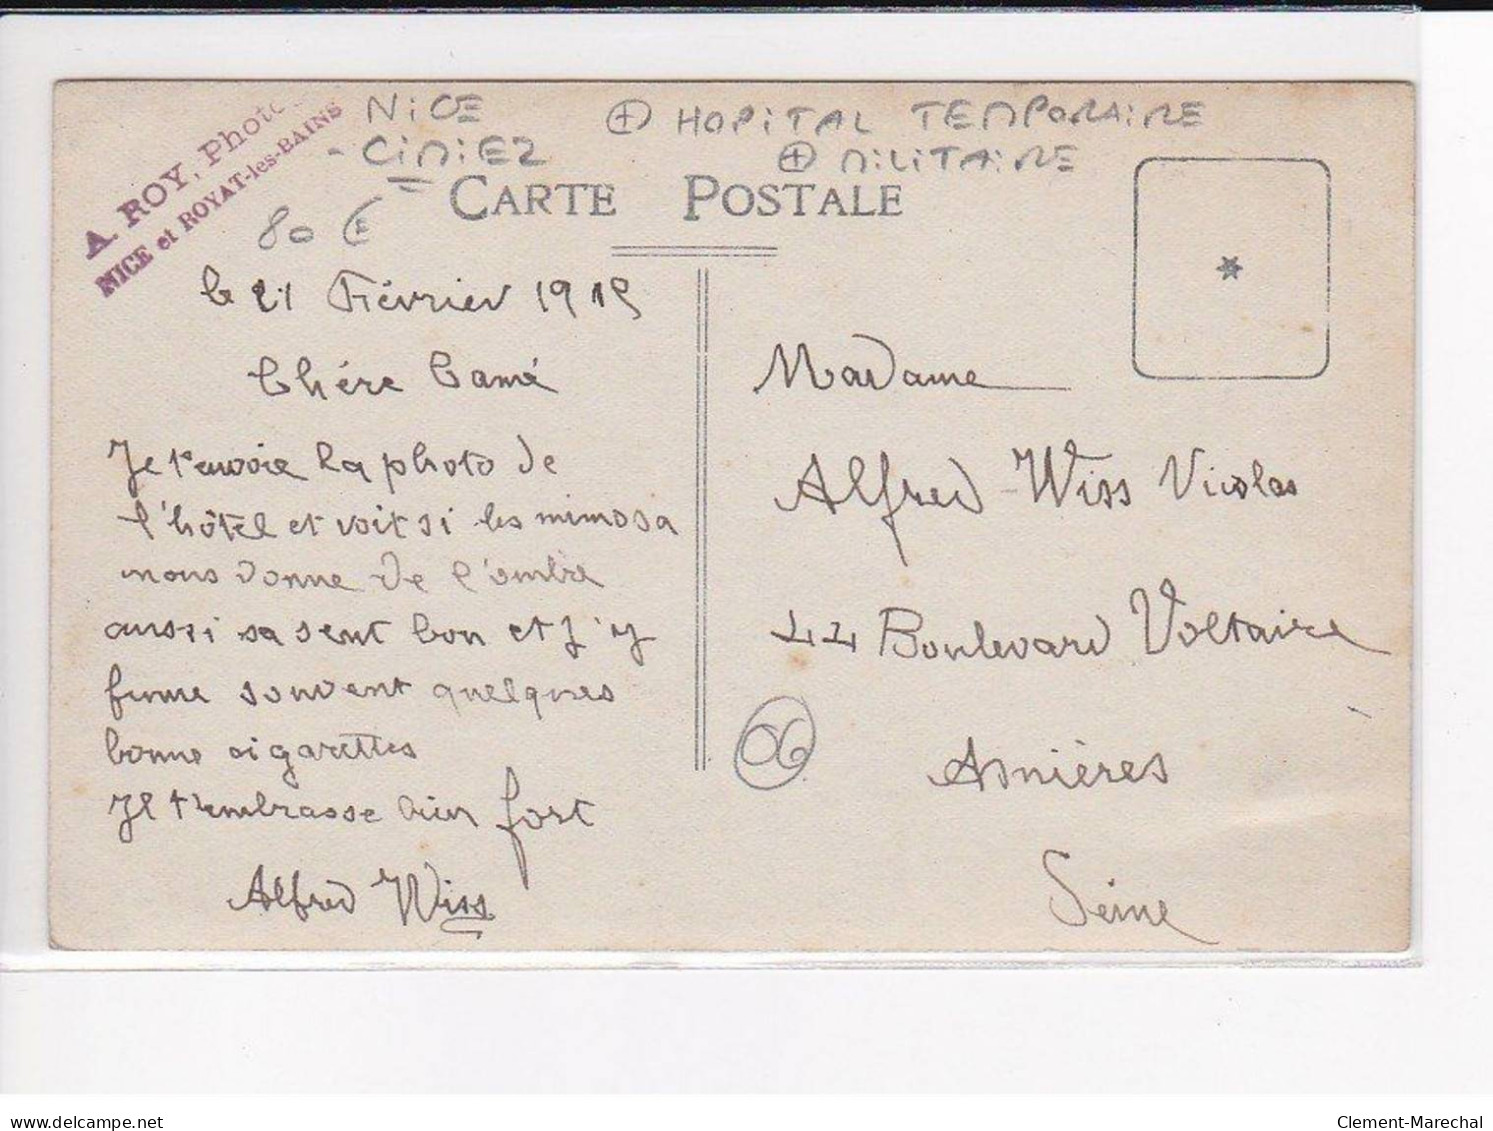 A. ROY, Photo
NICE et ROYAT-les-BAINS
NICE
- CIMIEZ
HOPITAL TEMPORAIRE
MILITAIRE
80 €
CARTE POSTALE
le 21 Février 1915
Chére Camé
Je t'envoie la photo de
l'hôtel et voit si les mimosa
nous donne de l'ombre
aussi sa sent bon et j'y
fume souvent quelques
bonne cigarettes
Je t'embrasse bien fort
Alfred Wiss
Madame
Alfred Wiss Nicolas
44 Boulevard Voltaire
Asnières
Seine
06
delcampe.net
Clement-Marechal